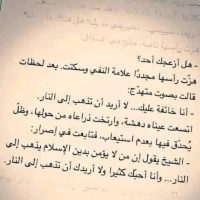 - هل أزعجك أحد؟
هزّت رأسها مجددًا علامة النفي وسكتت. بعد لحظات
قالت بصوت متهدّج:
- أنا خائفة عليك... لا أريد أن تذهب إلى النار.
اتسعت عيناه دهشة، وارتخت ذراعاه من حولها، وظلّ
يُحدّق فيها بعدم استيعاب، فتابعت في إصرار:
- الشيخ يقول إن من لا يؤمن بدين الإسلام يذهب إلى
النار... وأنا أحبّك كثيرا ولا أريدك أن تذهب إلى النار